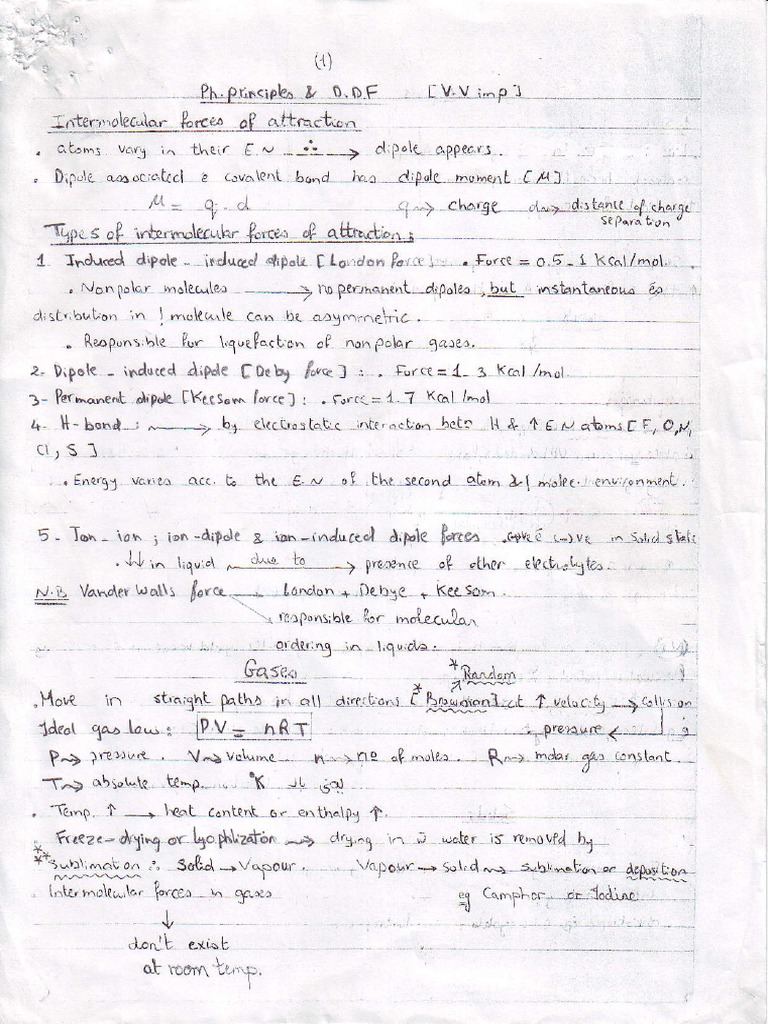 (1)
Ph. principles & D.D.F [V.V imp]
Intermolecular forces of attraction
. atoms vary in their E.N ∴ → dipole appears.
. Dipole associated c̄ covalent bond has dipole moment [M]
M = q . d q → charge d → distance of charge
separation
Types of intermolecular forces of attraction:
1 Induced dipole - induced dipole [London force] . Force = 0.5 - 1 Kcal/mol.
. Nonpolar molecules → no permanent dipoles, but instantaneous és
distribution in ! molecule can be asymmetric.
. Responsible for liquefaction of nonpolar gases.
2- Dipole - induced dipole [Deby force] : . Force = 1 - 3 Kcal/mol
3- Permanent dipole [Keesom force] : . Force = 1.7 Kcal/mol
4- H-bond : → by electrostatic interaction betn H & ↑ E.N atoms [F, O, N,
Cl, S]
. Energy varies acc. to the E.N of the second atom & ! molec. environment.
5- Ion - ion ; ion-dipole & ion-induced dipole forces in solid state
. ↓↓ in liquid due to → presence of other electrolytes.
N.B Vander Walls force → London + Debye + Keesom.
responsible for molecular
ordering in liquids.
Gases
* Random
. Move in straight paths in all directions [* Brownian] at ↑ velocity → collision
Ideal gas law: PV = nRT ∴ pressure ←
P → pressure. V → volume n → no of moles. R → molar gas constant.
T → absolute temp. °K
. Temp. ↑ → heat content or enthalpy ↑.
Freeze-drying or lyophilization → drying in w̄ water is removed by
** sublimation ∴ Solid → Vapour. Vapour → solid → sublimation or deposition
. Intermolecular forces in gases eg Camphor or Iodine
↓
don't exist
at room temp.